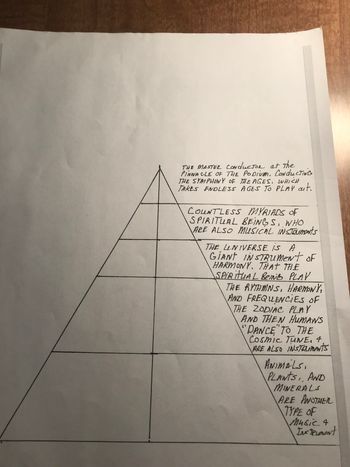 THE MASTER CONDUCTOR at the
PINNACLE OF THE PODIUM. CONDUCTING
THE SYMPHONY OF THE AGES. WHICH
TAKES ENDLESS AGES TO PLAY out.
COUNTLESS MYRIADS OF
SPIRITUAL BEINGS, WHO
ARE ALSO MUSICAL INSTRUMENTS
THE UNIVERSE IS A
GIANT INSTRUMENT OF
HARMONY. THAT THE
SPIRITUAL BEINGS PLAY
THE RYTHMNS, HARMONY,
AND FREQUENCIES OF
THE ZODIAC PLAY
AND THEN HUMANS
"DANCE" TO THE
COSMIC TUNE. &
ARE ALSO INSTRUMENTS
ANIMALS,
PLANTS, AND
MINERALS
ARE ANOTHER
TYPE OF
MUSIC &
INSTRUMENT